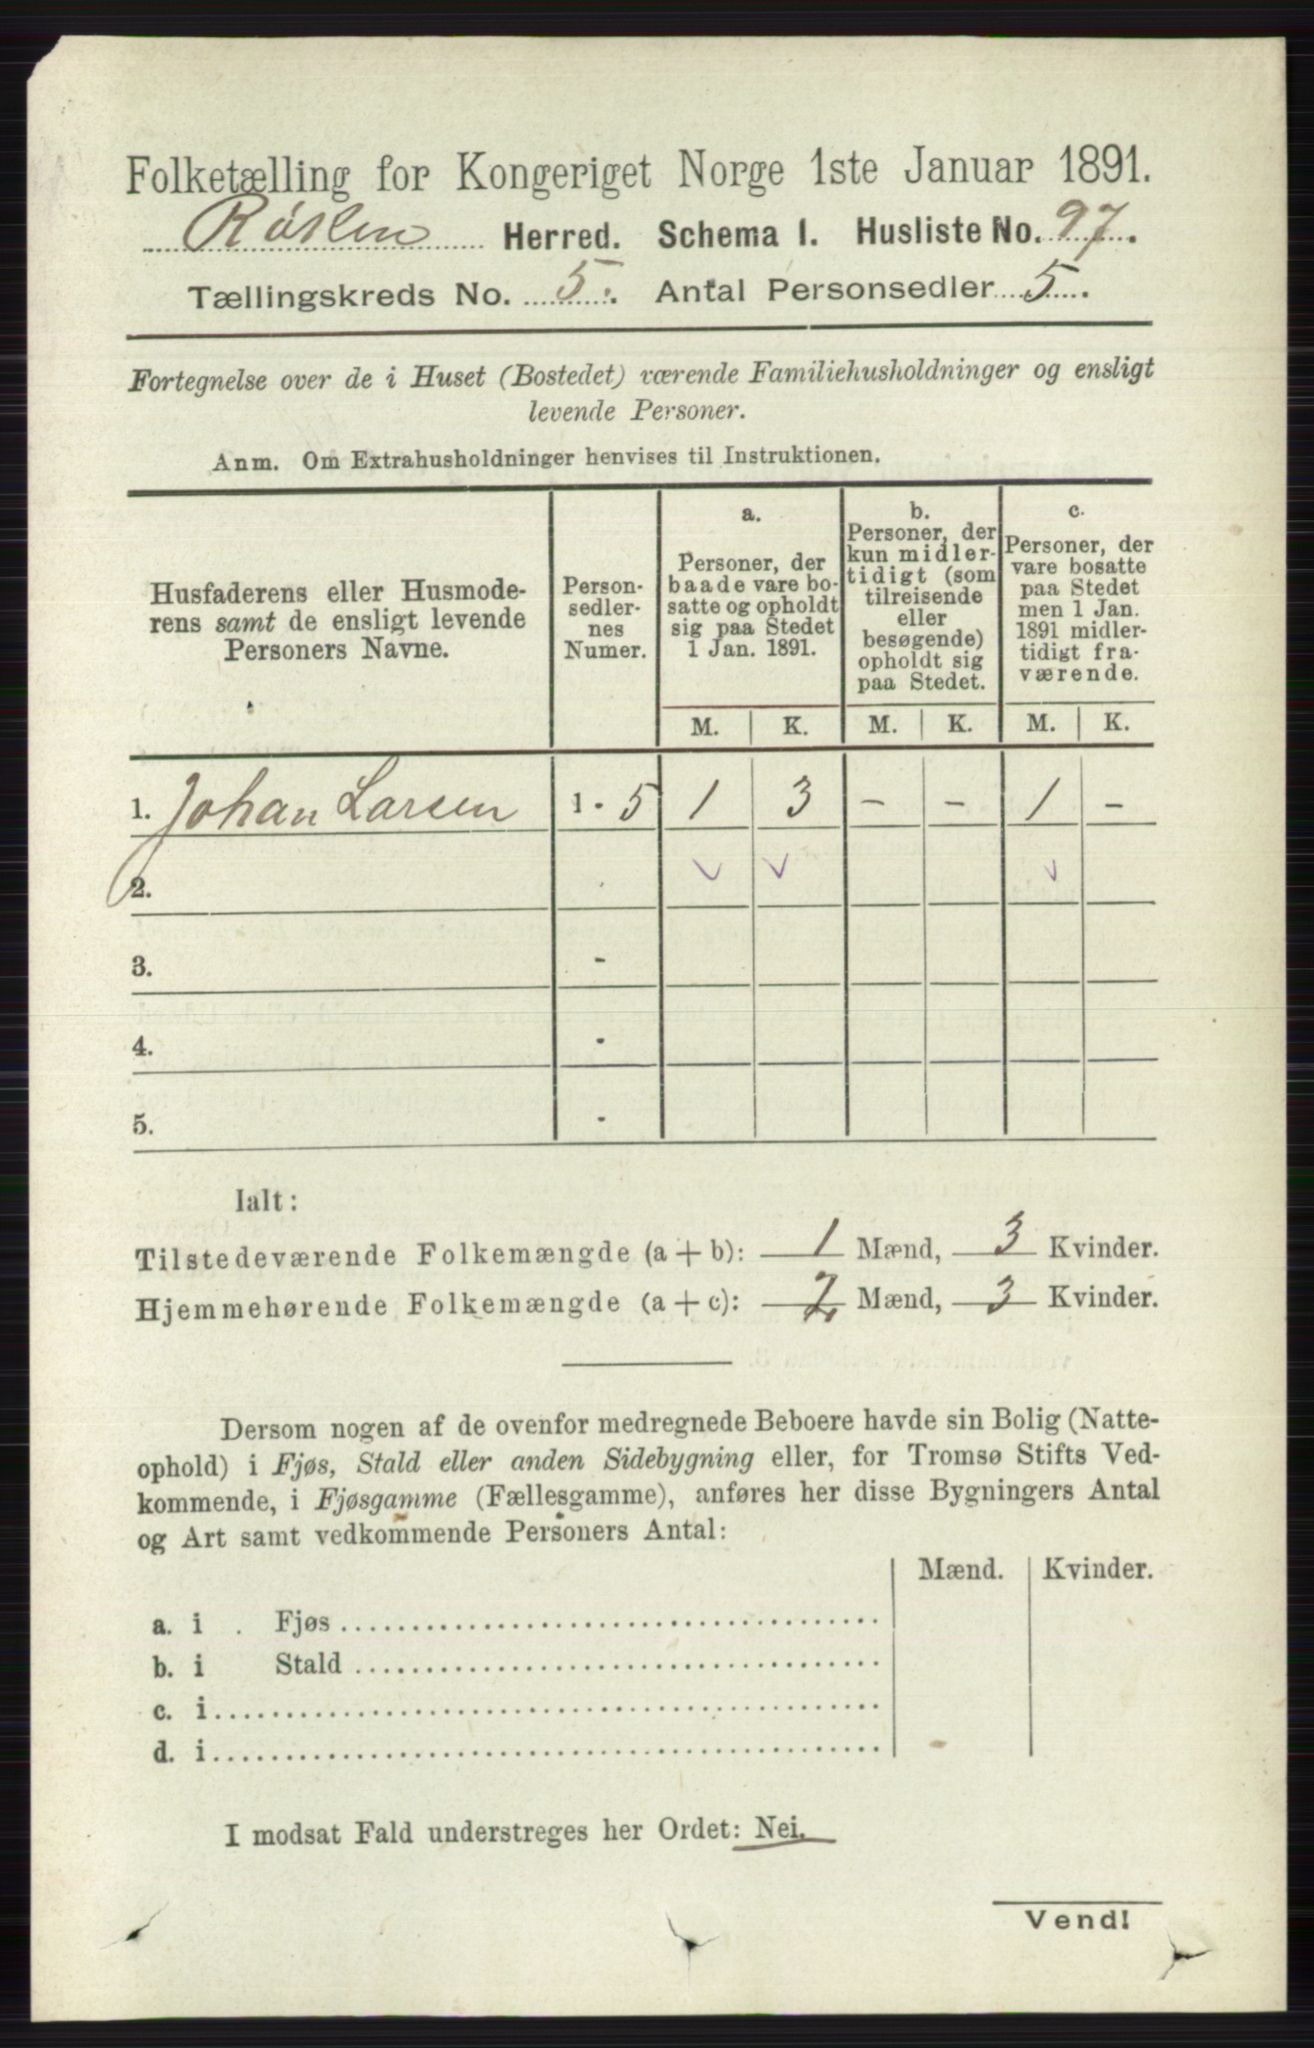 Folketælling for Kongeriget Norge 1ste Januar 1891.
Røken Herred. Schema I. Husliste No. 97.
Tællingskreds No. 5. Antal Personsedler 5.
Fortegnelse over de i Huset (Bostedet) værende Familiehusholdninger og ensligt
levende Personer.
Anm. Om Extrahusholdninger henvises til Instruktionen.
Husfaderens eller Husmode-
rens samt de ensligt levende
Personers Navne.
Person-
sedler-
nes
Numer.
a.
Personer, der
baade vare bo-
satte og opholdt
sig paa Stedet
1 Jan. 1891.
b.
Personer, der
kun midler-
tidigt (som
tilreisende
eller
besøgende)
opholdt sig
paa Stedet.
c.
Personer, der
vare bosatte
paa Stedet
men 1 Jan.
1891 midler-
tidigt fra-
værende.
M. K. M. K. M. K.
1. Johan Larsen 1 - 5 1 3 - - 1 -
2.
3. -
4. -
5. -
Ialt:
Tilstedeværende Folkemængde (a + b): 1 Mænd, 3 Kvinder.
Hjemmehørende Folkemængde (a + c): 2 Mænd, 3 Kvinder.
Dersom nogen af de ovenfor medregnede Beboere havde sin Bolig (Natte-
ophold) i Fjøs, Stald eller anden Sidebygning eller, for Tromsø Stifts Ved-
kommende, i Fjøsgamme (Fællesgamme), anføres her disse Bygningers Antal
og Art samt vedkommende Personers Antal:
Mænd. Kvinder.
a. i Fjøs
b. i Stald
c. i
d. i
I modsat Fald understreges her Ordet: Nei.
Vend!